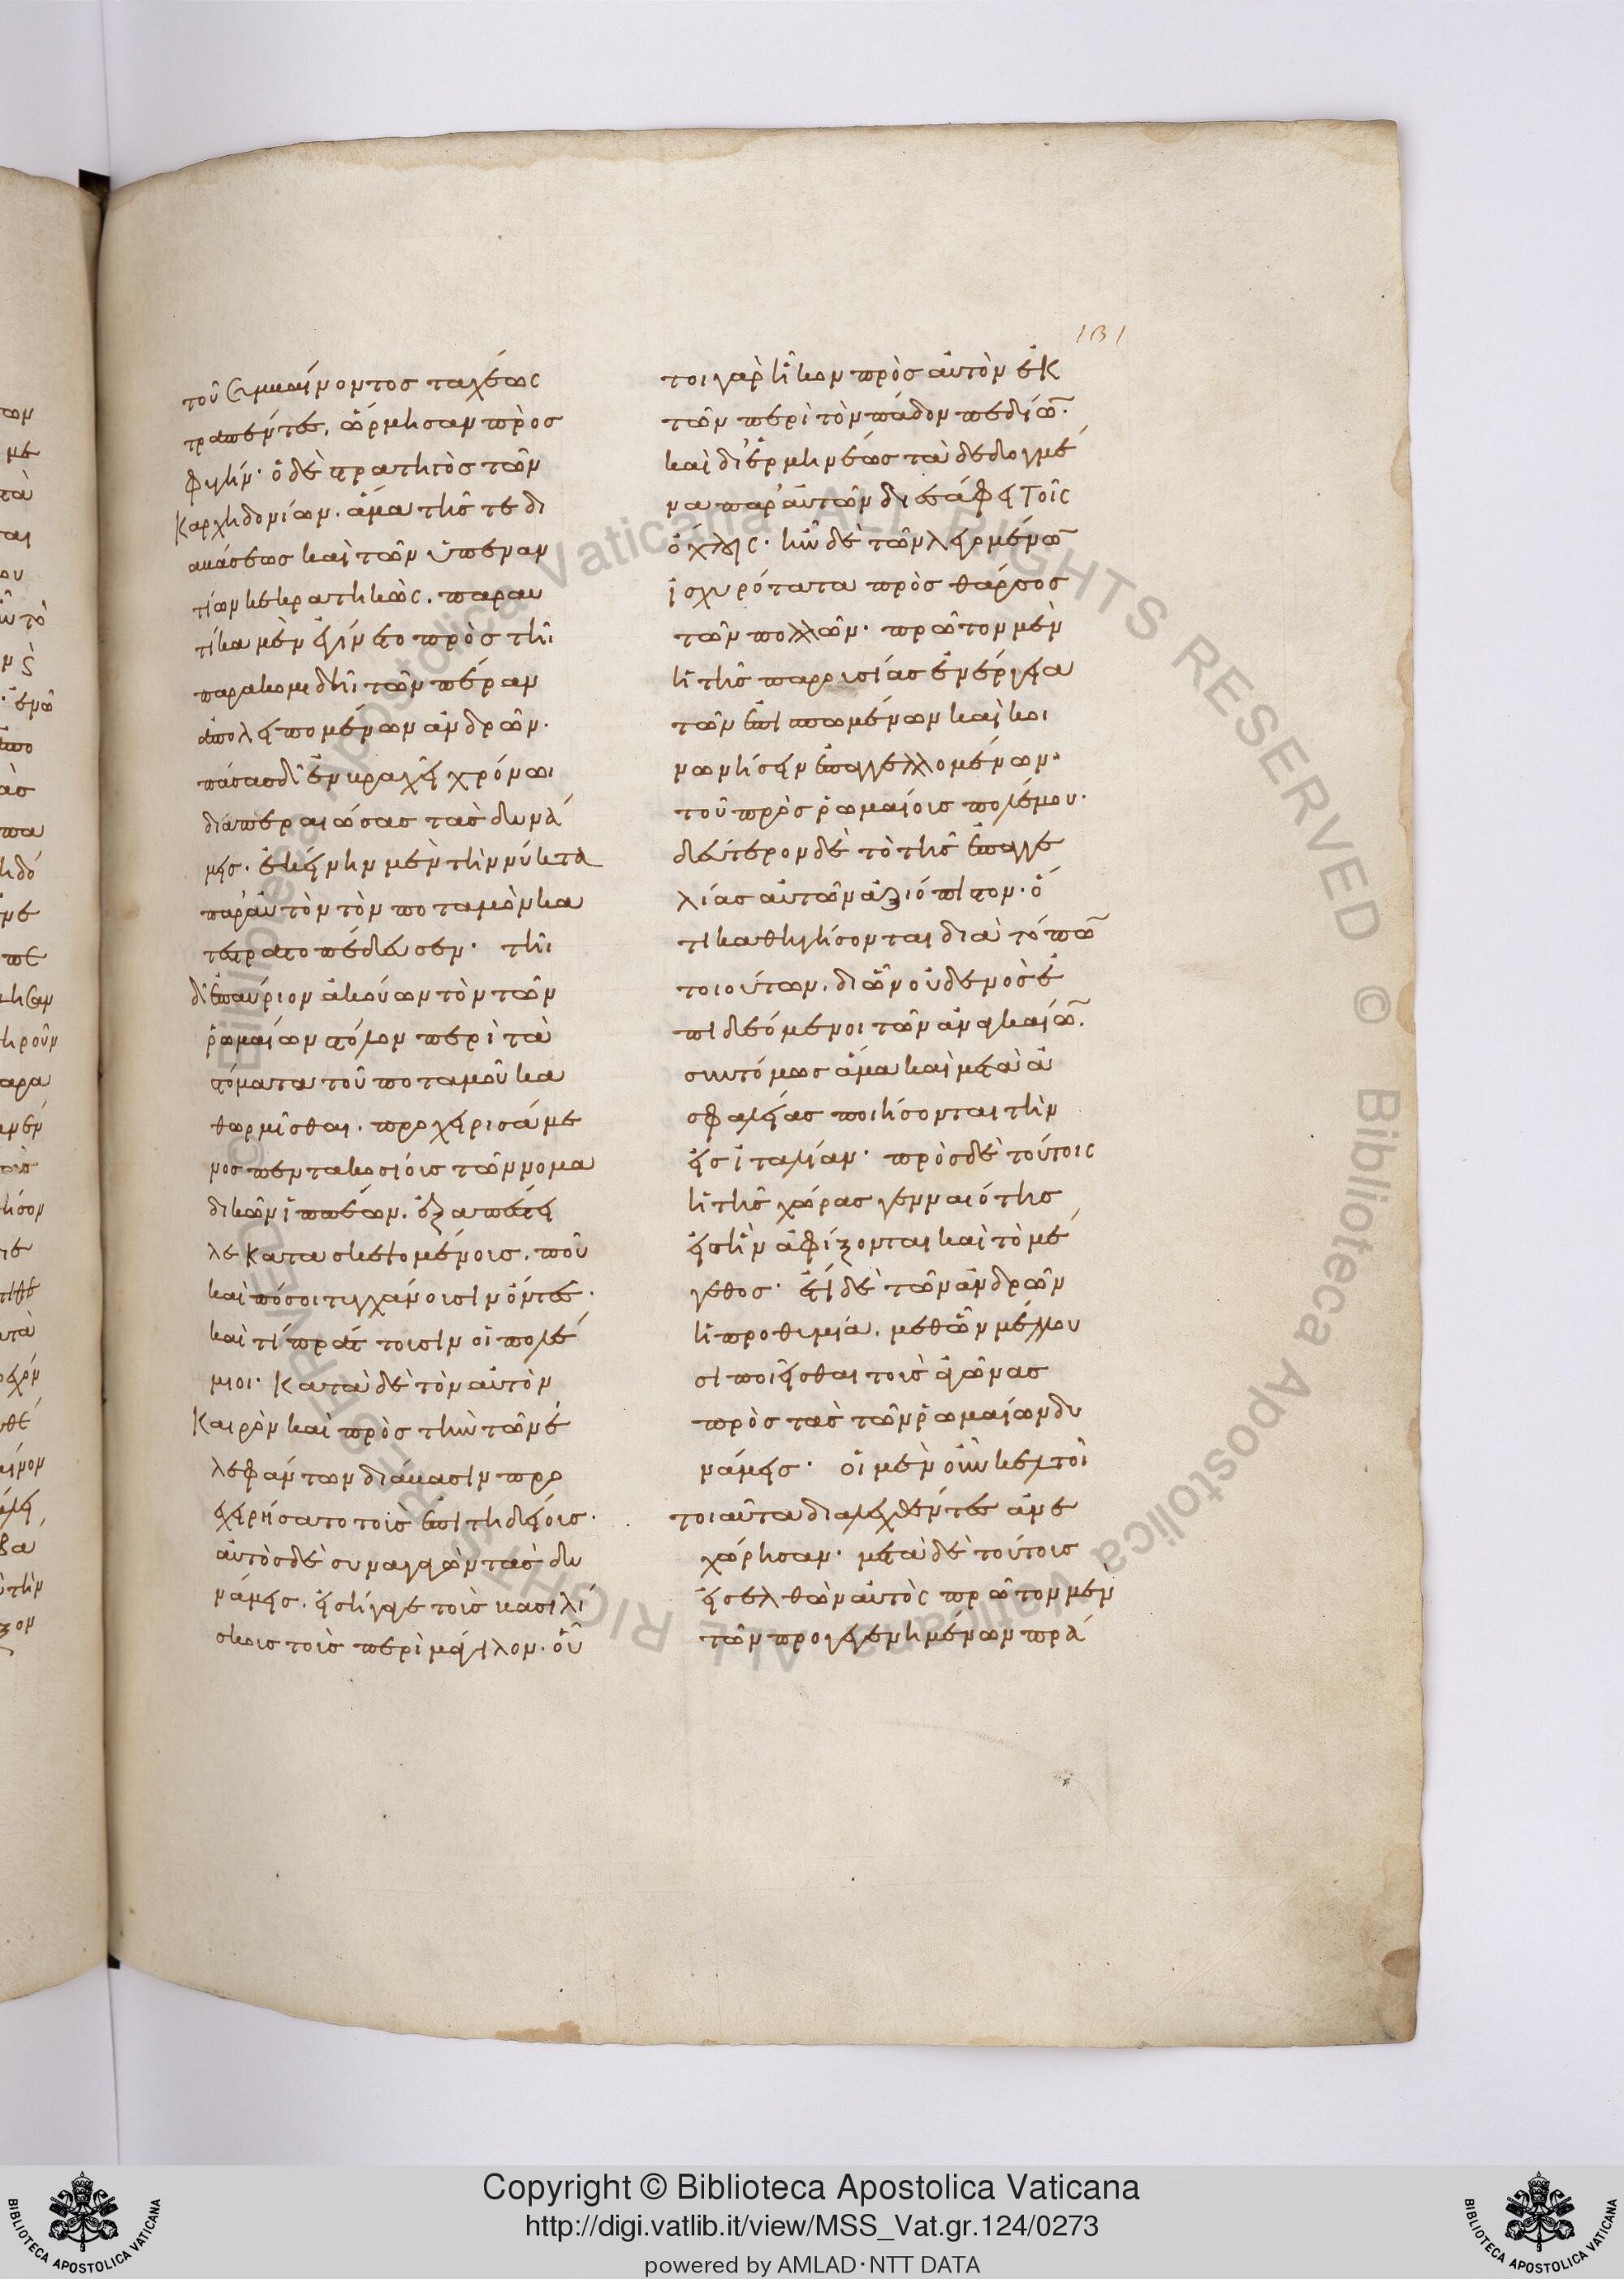 131
τοῦ συμβαίνοντος ταχέως
τραπέντες, ὥρμησαν πρὸς
φυγήν· ὁ δὲ στρατηγὸς τῶν
Καρχηδονίων. ἅμα τῆς τε δι
αβάσεως καὶ τῶν ὑπεναν
τίων κεκρατηκὼς. παραυ
τίκα μὲν ἐγίνετο πρὸς τῆι
παρακομιδῆι τῶν πέραν
ἀπολειπομένων ἀνδρῶν·
πάσας δ' ἐν βραχεῖ χρόνωι
διαπεραιώσας τὰς δυνά
μεις. ἐκείνην μὲν τὴν νύκτα
παρ' αὐτὸν τὸν ποταμὸν κα
τεστρατοπέδευσεν· τῆι
δ' ἐπαύριον ἀκούων τὸν τῶν
ῥωμαίων στόλον περὶ τὰ
στόματα τοῦ ποταμοῦ κα
θωρμίσθαι. προχειρισάμε
νος πεντακοσίοις τῶν νομα
δικῶν ἱππέων. ἐξαπέστει
λε κατασκεψομένοις. ποῦ
καὶ πόσοι τυγχάνουσιν ὄντες.
καὶ τί πράττουσιν οἱ πολέ
μιοι· Κατὰ δὲ τὸν αὐτὸν
Καιρὸν καὶ πρὸς τὴν τῶν ἐ
λεφάντων διάβασιν προ
εχειρήσατο τοὺς ἐπιτηδείους.
αὐτὸς δὲ συναγαγὼν τὰς δυ
νάμεις. εἰσήγαγε τοὺς βασιλί
σκους τοὺς περὶ μάγιλον. οὗ
τοι γὰρ ἧκον πρὸς αὐτὸν ἐκ
τῶν περὶ τὸν πάδον πεδίων.
καὶ δι' ἑρμηνέως τὰ δεδογμέ
να παρ' αὐτῶν διεσάφει τοῖς
ὄχλοις· ἦν δὲ τῶν λεγομένων
ἰσχυρότατα πρὸς θάρσος
τῶν πολλῶν· πρῶτον μὲν
ἡ τῆς παρουσίας ἐνέργεια
τῶν ἐπισπωμένων καὶ κοι
νωνήσειν ἐπαγγελλομένων·
τοῦ πρὸς ῥωμαίους πολέμου·
δεύτερον δὲ τὸ τῆς ἐπαγγε
λίας αὐτῶν ἀξιόπιστον· ὅ
τι καθηγήσονται διὰ τόπων
τοιούτων. δι ὧν οὐδενὸς ἐ
πιδεόμενοι τῶν ἀναγκαίων.
συντόμως ἅμα καὶ μετὰ ἀ
σφαλείας ποιήσονται τὴν
εἰς ἰταλίαν· πρὸς δὲ τούτοις
ἡ τῆς χώρας γενναιότης
εἰς ἣν ἀφίξονται καὶ τὸ μέ
γεθος· ἔτι δὲ τῶν ἀνδρῶν
ἡ προθυμία. μεθ ὧν μέλλου
σι ποιεῖσθαι τοὺς ἀγῶνας
πρὸς τὰς τῶν ῥωμαίων δυ
νάμεις· οἱ μὲν οὖν κελτοὶ
τοιαῦτα διαλεχθέντες ἀνε
χώρησαν· μετὰ δὲ τούτους
εἰσελθὼν αὐτὸς πρῶτον μὲν
τῶν προγεγενημένων πρά
Copyright © Biblioteca Apostolica Vaticana
http://digi.vatlib.it/view/MSS_Vat.gr.124/0273
powered by AMLAD·NTT DATA